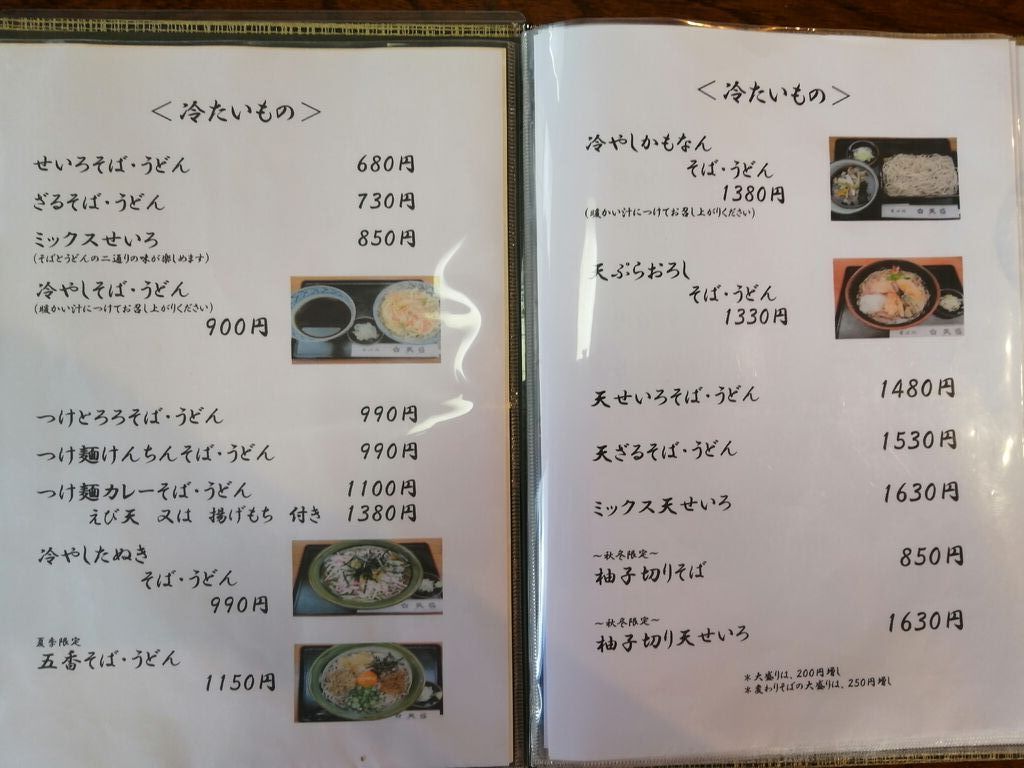 ＜冷たいもの＞
せいろそば・うどん 680円
ざるそば・うどん 730円
ミックスせいろ 850円
(そばとうどんの二通りの味が楽しめます)
冷やしそば・うどん
(暖かい汁につけてお召し上がりください)
900円
つけとろろそば・うどん 990円
つけ麺けんちんそば・うどん 990円
つけ麺カレーそば・うどん 1100円
えび天 又は 揚げもち 付き 1380円
冷やしたぬき
そば・うどん
990円
夏季限定
五香そば・うどん
1150円
＜冷たいもの＞
冷やしかもなん
そば・うどん
1380円
(暖かい汁につけてお召し上がりください)
天ぷらおろし
そば・うどん
1330円
天せいろそば・うどん 1480円
天ざるそば・うどん 1530円
ミックス天せいろ 1630円
～秋冬限定～
柚子切りそば 850円
～秋冬限定～
柚子切り天せいろ 1630円
＊大盛りは、200円増し
＊変わりそばの大盛りは、250円増し